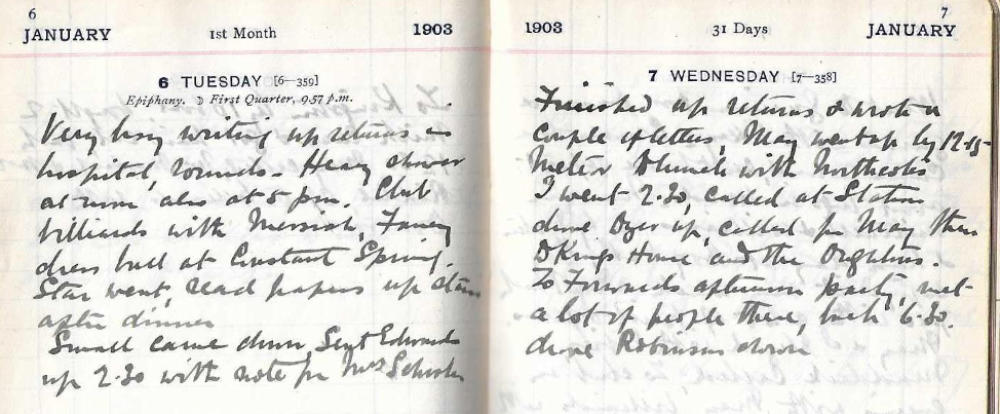 6
JANUARY 1st Month 1903
6 TUESDAY [6—359]
Epiphany. ☽ First Quarter, 9.57 p.m.
Very busy writing up returns in
hospital, rounds. Heavy shower
at noon also at 5 pm. Club
billiards with Messiah, Fancy
dress ball at Constant Spring.
Star went, read papers up stairs
after dinner
Small came down, Sergt Edwards
up 2.30 with note for Mrs
7
1903 31 Days JANUARY
7 WEDNESDAY [7—358]
Finished up returns & wrote a
couple of letters, May went up by 12.15
to lunch with Northcotes
I went 2.30, called at Station
drove up, called for May then
Kings House and the
To afternoon party, met
a lot of people there, back 6.30.
drove Robinson down